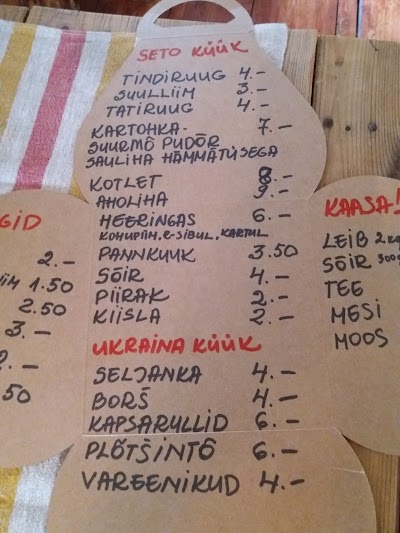 SETO KÜÜK
TINDIRUUG 4.-
SUULLIIM 3.-
TATIRUUG 4.-
KARTOHKA- 7.-
SUURMÕ PUDÕR
SAULIHA HÄMMÄTÜSEGA
KOTLET 8.-
AHOLIHA 9.-
HEERINGAS 6.-
KOHUPIIM, R-SIBUL, KARTUL
PANNKUUK 3.50
SÕIR 4.-
PIIRAK 2.-
KIISLA 2.-
UKRAINA KÜÜK
SELJANKA 4.-
BORŠ 4.-
KAPSARULLID 6.-
PLÕTŠINTÕ 6.-
VAREENIKUD 4.-
GID
2.-
1.50
2.50
3.-
2.-
50
KAASA!
LEIB 2 kg
SÕIR 300
TEE
MESI
MOOS